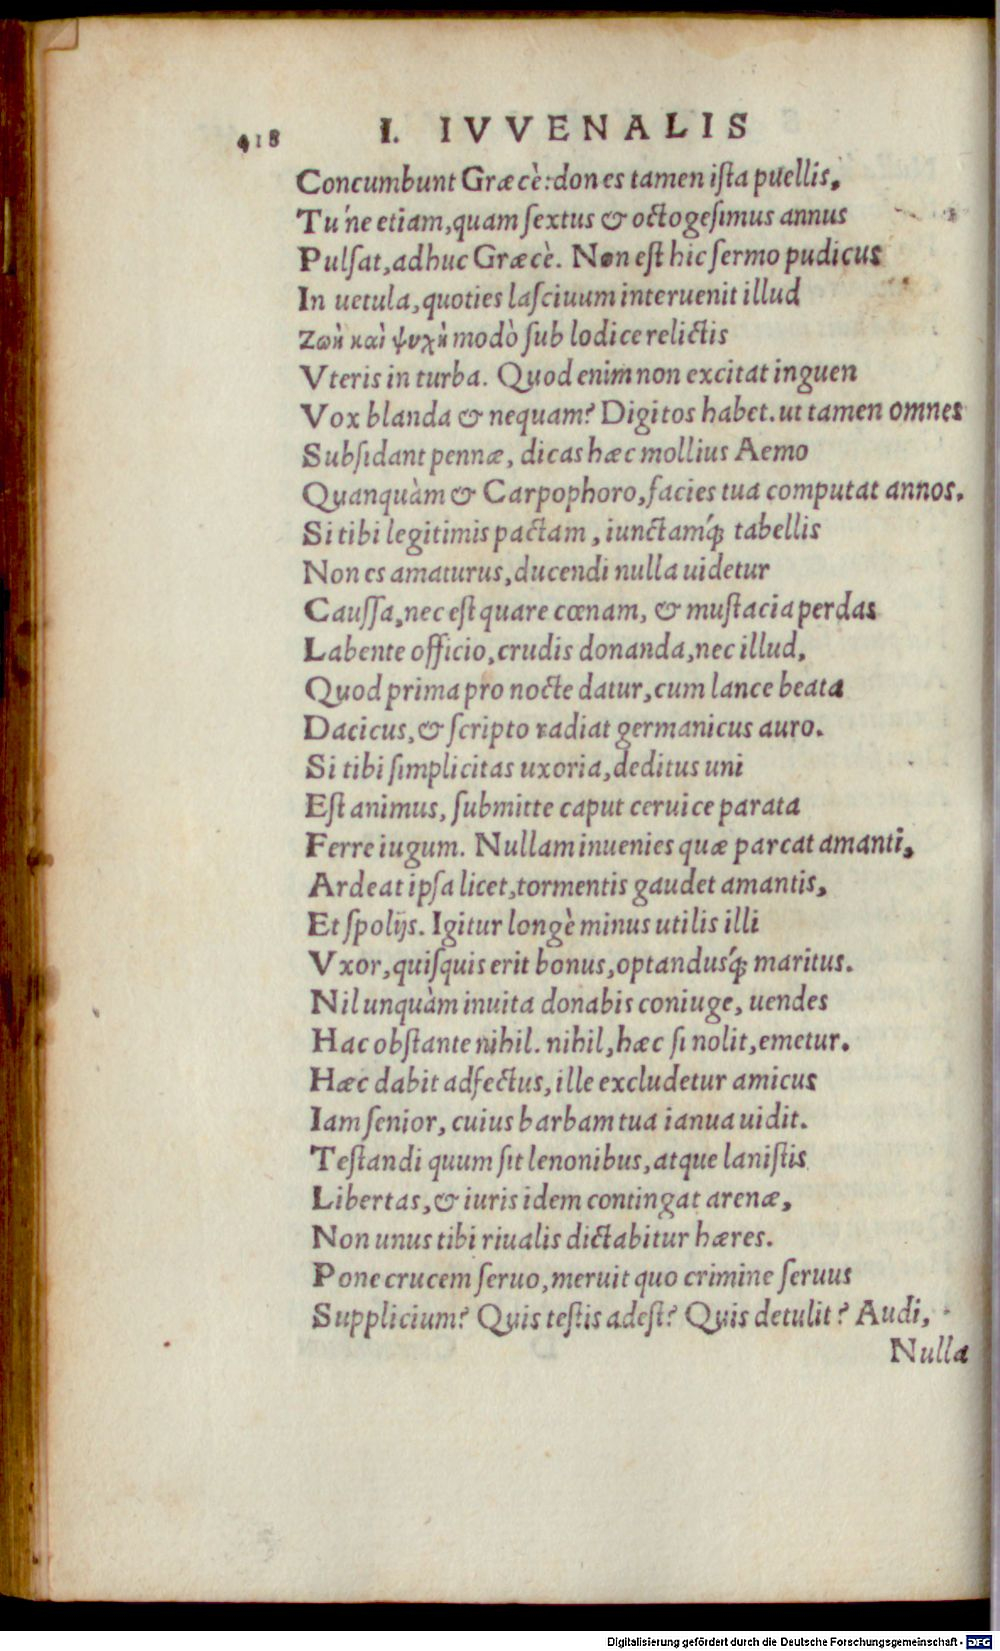 418 I. IVVENALIS
Concumbunt Græcè: dones tamen ista puellis.
Tu'ne etiam, quam sextus & octogesimus annus
Pulsat, adhuc Græcè. Non est hic sermo pudicus
In uetula, quoties lasciuum interuenit illud
Ζωὴ καὶ ψυχὴ modò sub lodice relictis
Vteris in turba. Quod enim non excitat inguen
Vox blanda & nequam? Digitos habet. ut tamen omnes
Subsidant pennæ, dicas hæc mollius Aemo
Quanquàm & Carpophoro, facies tua computat annos.
Si tibi legitimis pactam, iunctamq́; tabellis
Non es amaturus, ducendi nulla uidetur
Caussa, nec est quare cœnam, & mustacia perdas
Labente officio, crudis donanda, nec illud,
Quod prima pro nocte datur, cum lance beata
Dacicus, & scripto radiat germanicus auro.
Si tibi simplicitas uxoria, deditus uni
Est animus, submitte caput ceruice parata
Ferre iugum. Nullam inuenies quæ parcat amanti,
Ardeat ipsa licet, tormentis gaudet amantis,
Et spolijs. Igitur longè minus utilis illi
Vxor, quisquis erit bonus, optandusq́; maritus.
Nil unquàm inuita donabis coniuge, uendes
Hac obstante nihil. nihil, hæc si nolit, emetur.
Hæc dabit adfectus, ille excludetur amicus
Iam senior, cuius barbam tua ianua uidit.
Testandi quum sit lenonibus, atque lanistis
Libertas, & iuris idem contingat arenæ,
Non unus tibi riualis dictabitur hæres.
Pone crucem seruo, meruit quo crimine seruus
Supplicium? Quis testis adest? Quis detulit? Audi,
Nulla
Digitalisierung gefördert durch die Deutsche Forschungsgemeinschaft - DFG